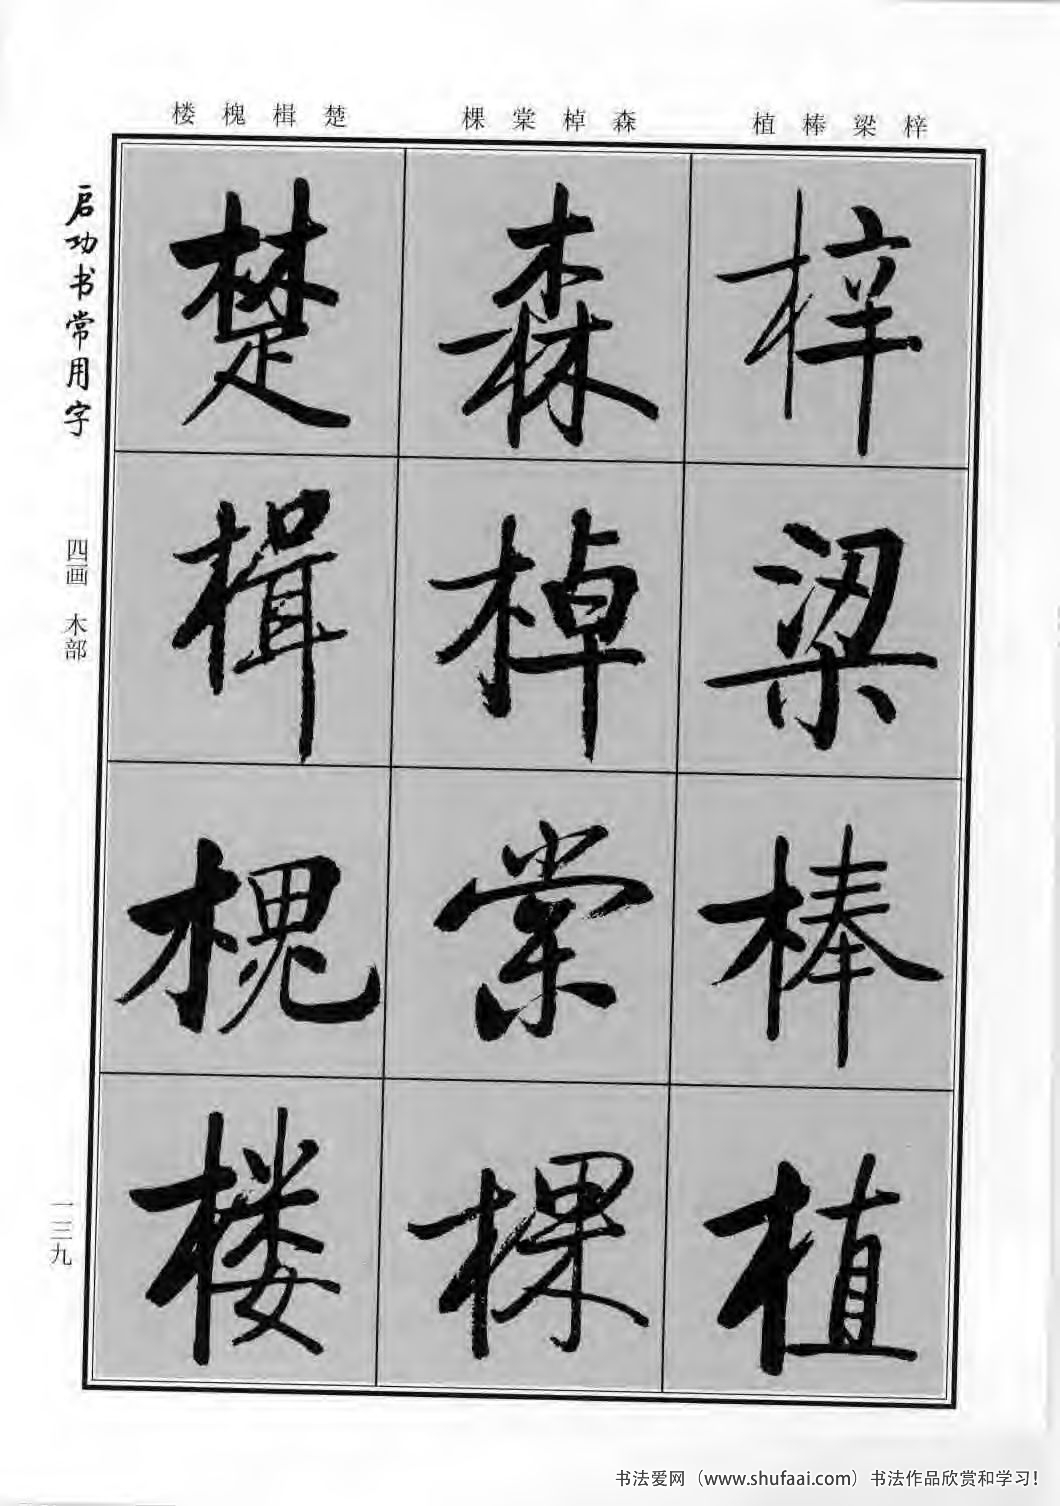 楼槐楫楚
棵棠棹森
植棒梁梓
启功书常用字
四画 木部
一三九
梓
梁
棒
植
森
棹
棠
棵
楚
楫
槐
楼
书法爱网（www.shufaai.com）书法作品欣赏和学习！